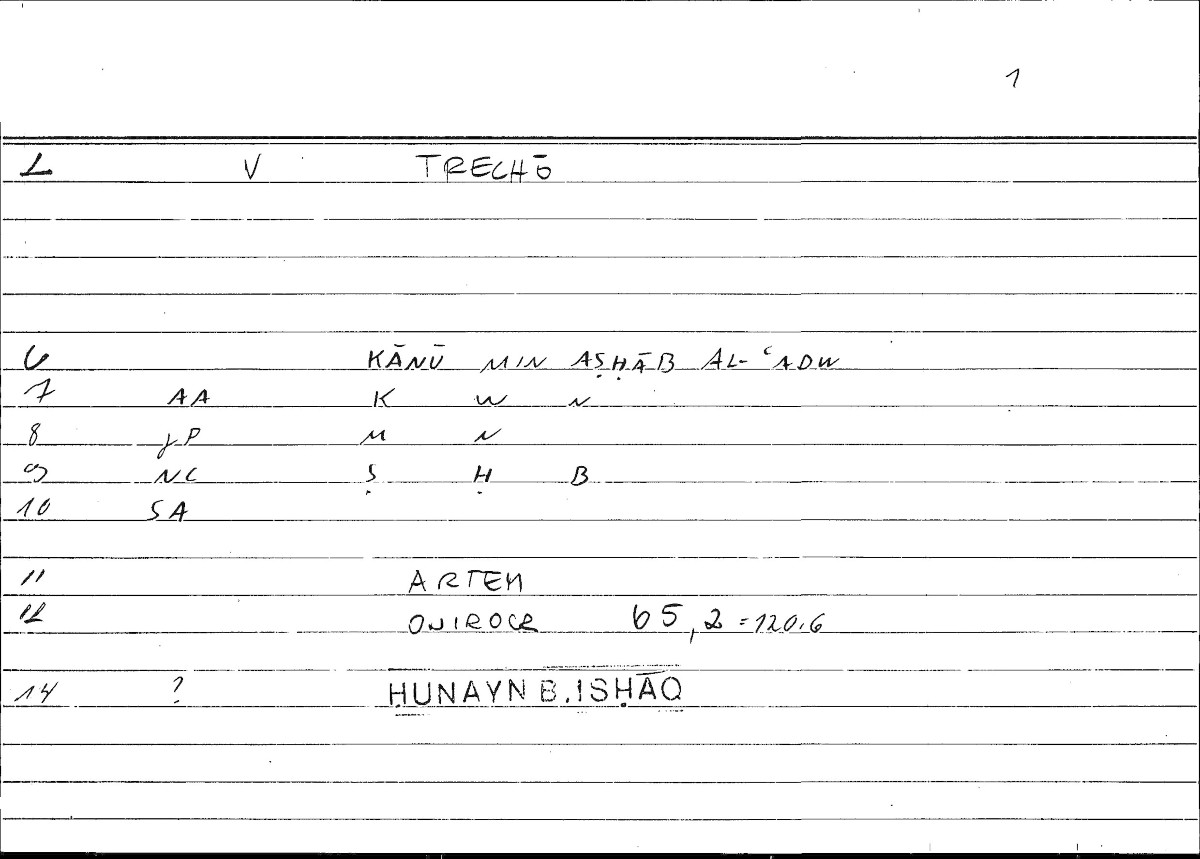 1
L V TRECHŌ
6 KĀNŪ MIN AṢḤĀB AL-ʿADW
7 AA K W N
8 JP M N
9 NC Ṣ Ḥ B
10 SA
11 ARTEM
12 ONIROCR 65,2=120.6
14 ? ḤUNAYN B. ISḤĀQ